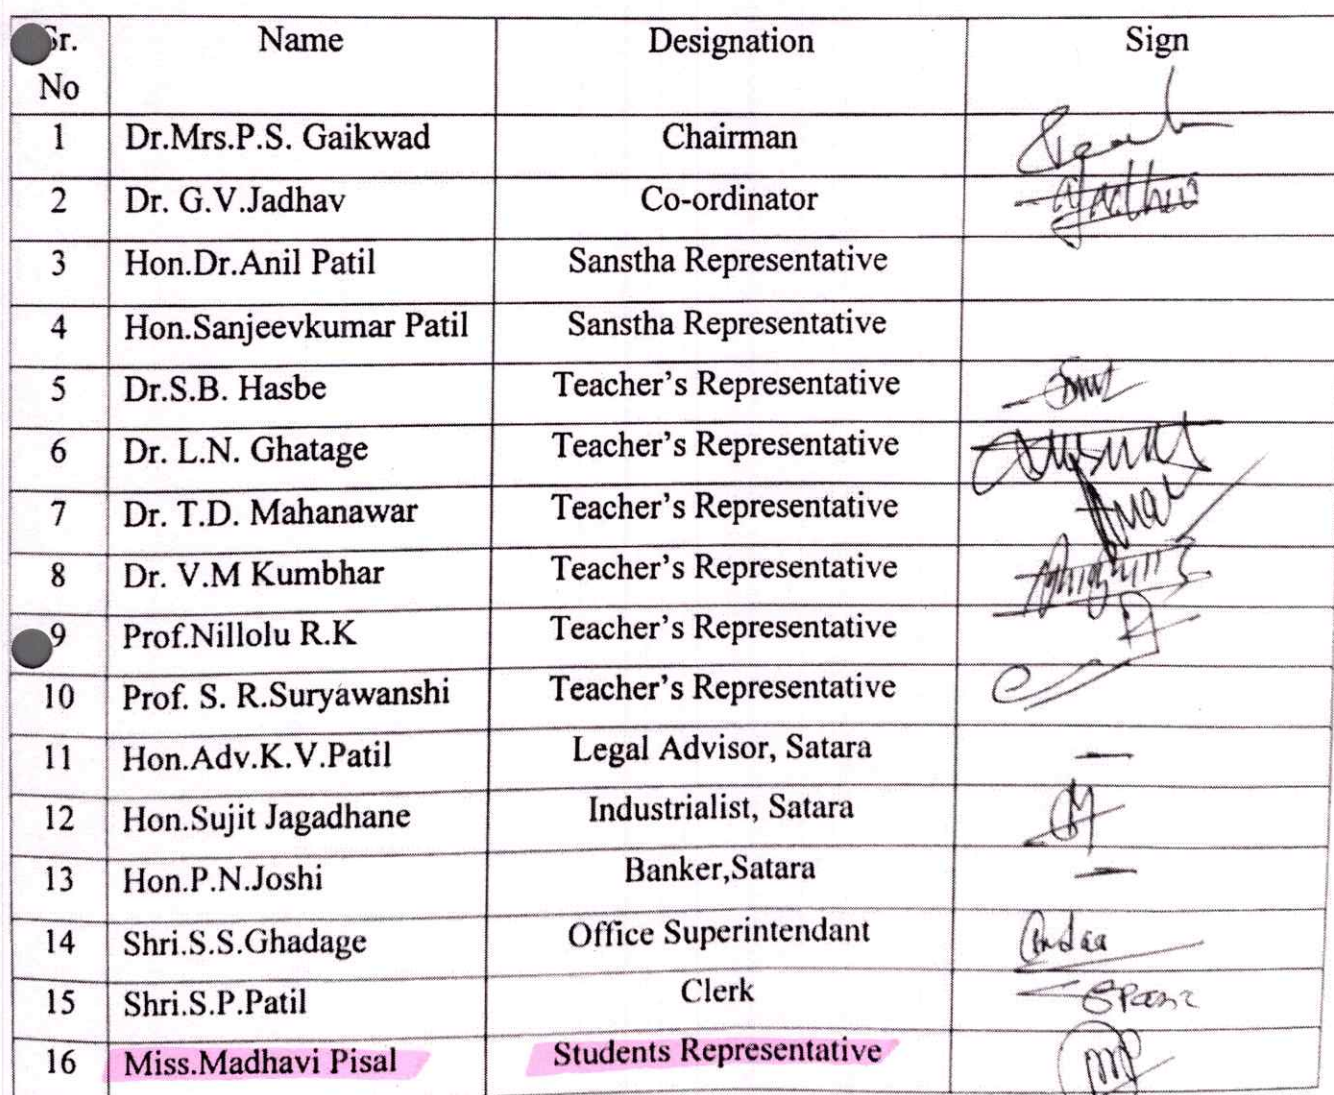 Sr. No Name Designation Sign
1 Dr.Mrs.P.S. Gaikwad Chairman
2 Dr. G.V.Jadhav Co-ordinator
3 Hon.Dr.Anil Patil Sanstha Representative
4 Hon.Sanjeevkumar Patil Sanstha Representative
5 Dr.S.B. Hasbe Teacher's Representative
6 Dr. L.N. Ghatage Teacher's Representative
7 Dr. T.D. Mahanawar Teacher's Representative
8 Dr. V.M Kumbhar Teacher's Representative
9 Prof.Nillolu R.K Teacher's Representative
10 Prof. S. R.Suryawanshi Teacher's Representative
11 Hon.Adv.K.V.Patil Legal Advisor, Satara —
12 Hon.Sujit Jagadhane Industrialist, Satara
13 Hon.P.N.Joshi Banker,Satara —
14 Shri.S.S.Ghadage Office Superintendant
15 Shri.S.P.Patil Clerk
16 Miss.Madhavi Pisal Students Representative